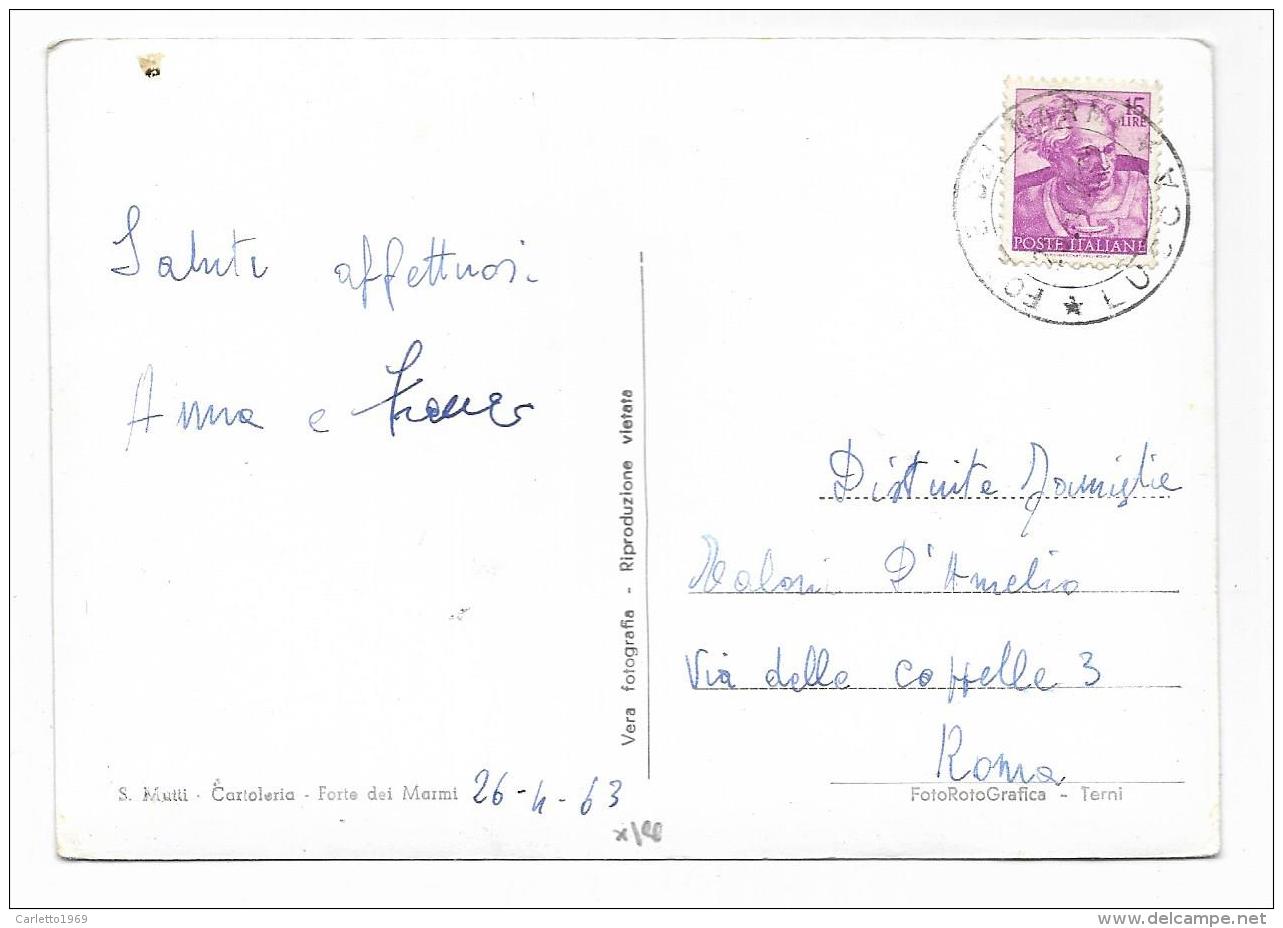 15
LIRE
POSTE ITALIANE
LUCCA
Saluti affettuosi
Anna e
Vera fotografia - Riproduzione vietata
Distinta Famiglia
D'Amelio
Via delle Cappelle 3
Roma
S. Mutti - Cartoleria - Forte dei Marmi 26-4-63
FotoRotoGrafica - Terni
Carletto1969
delcampe.net